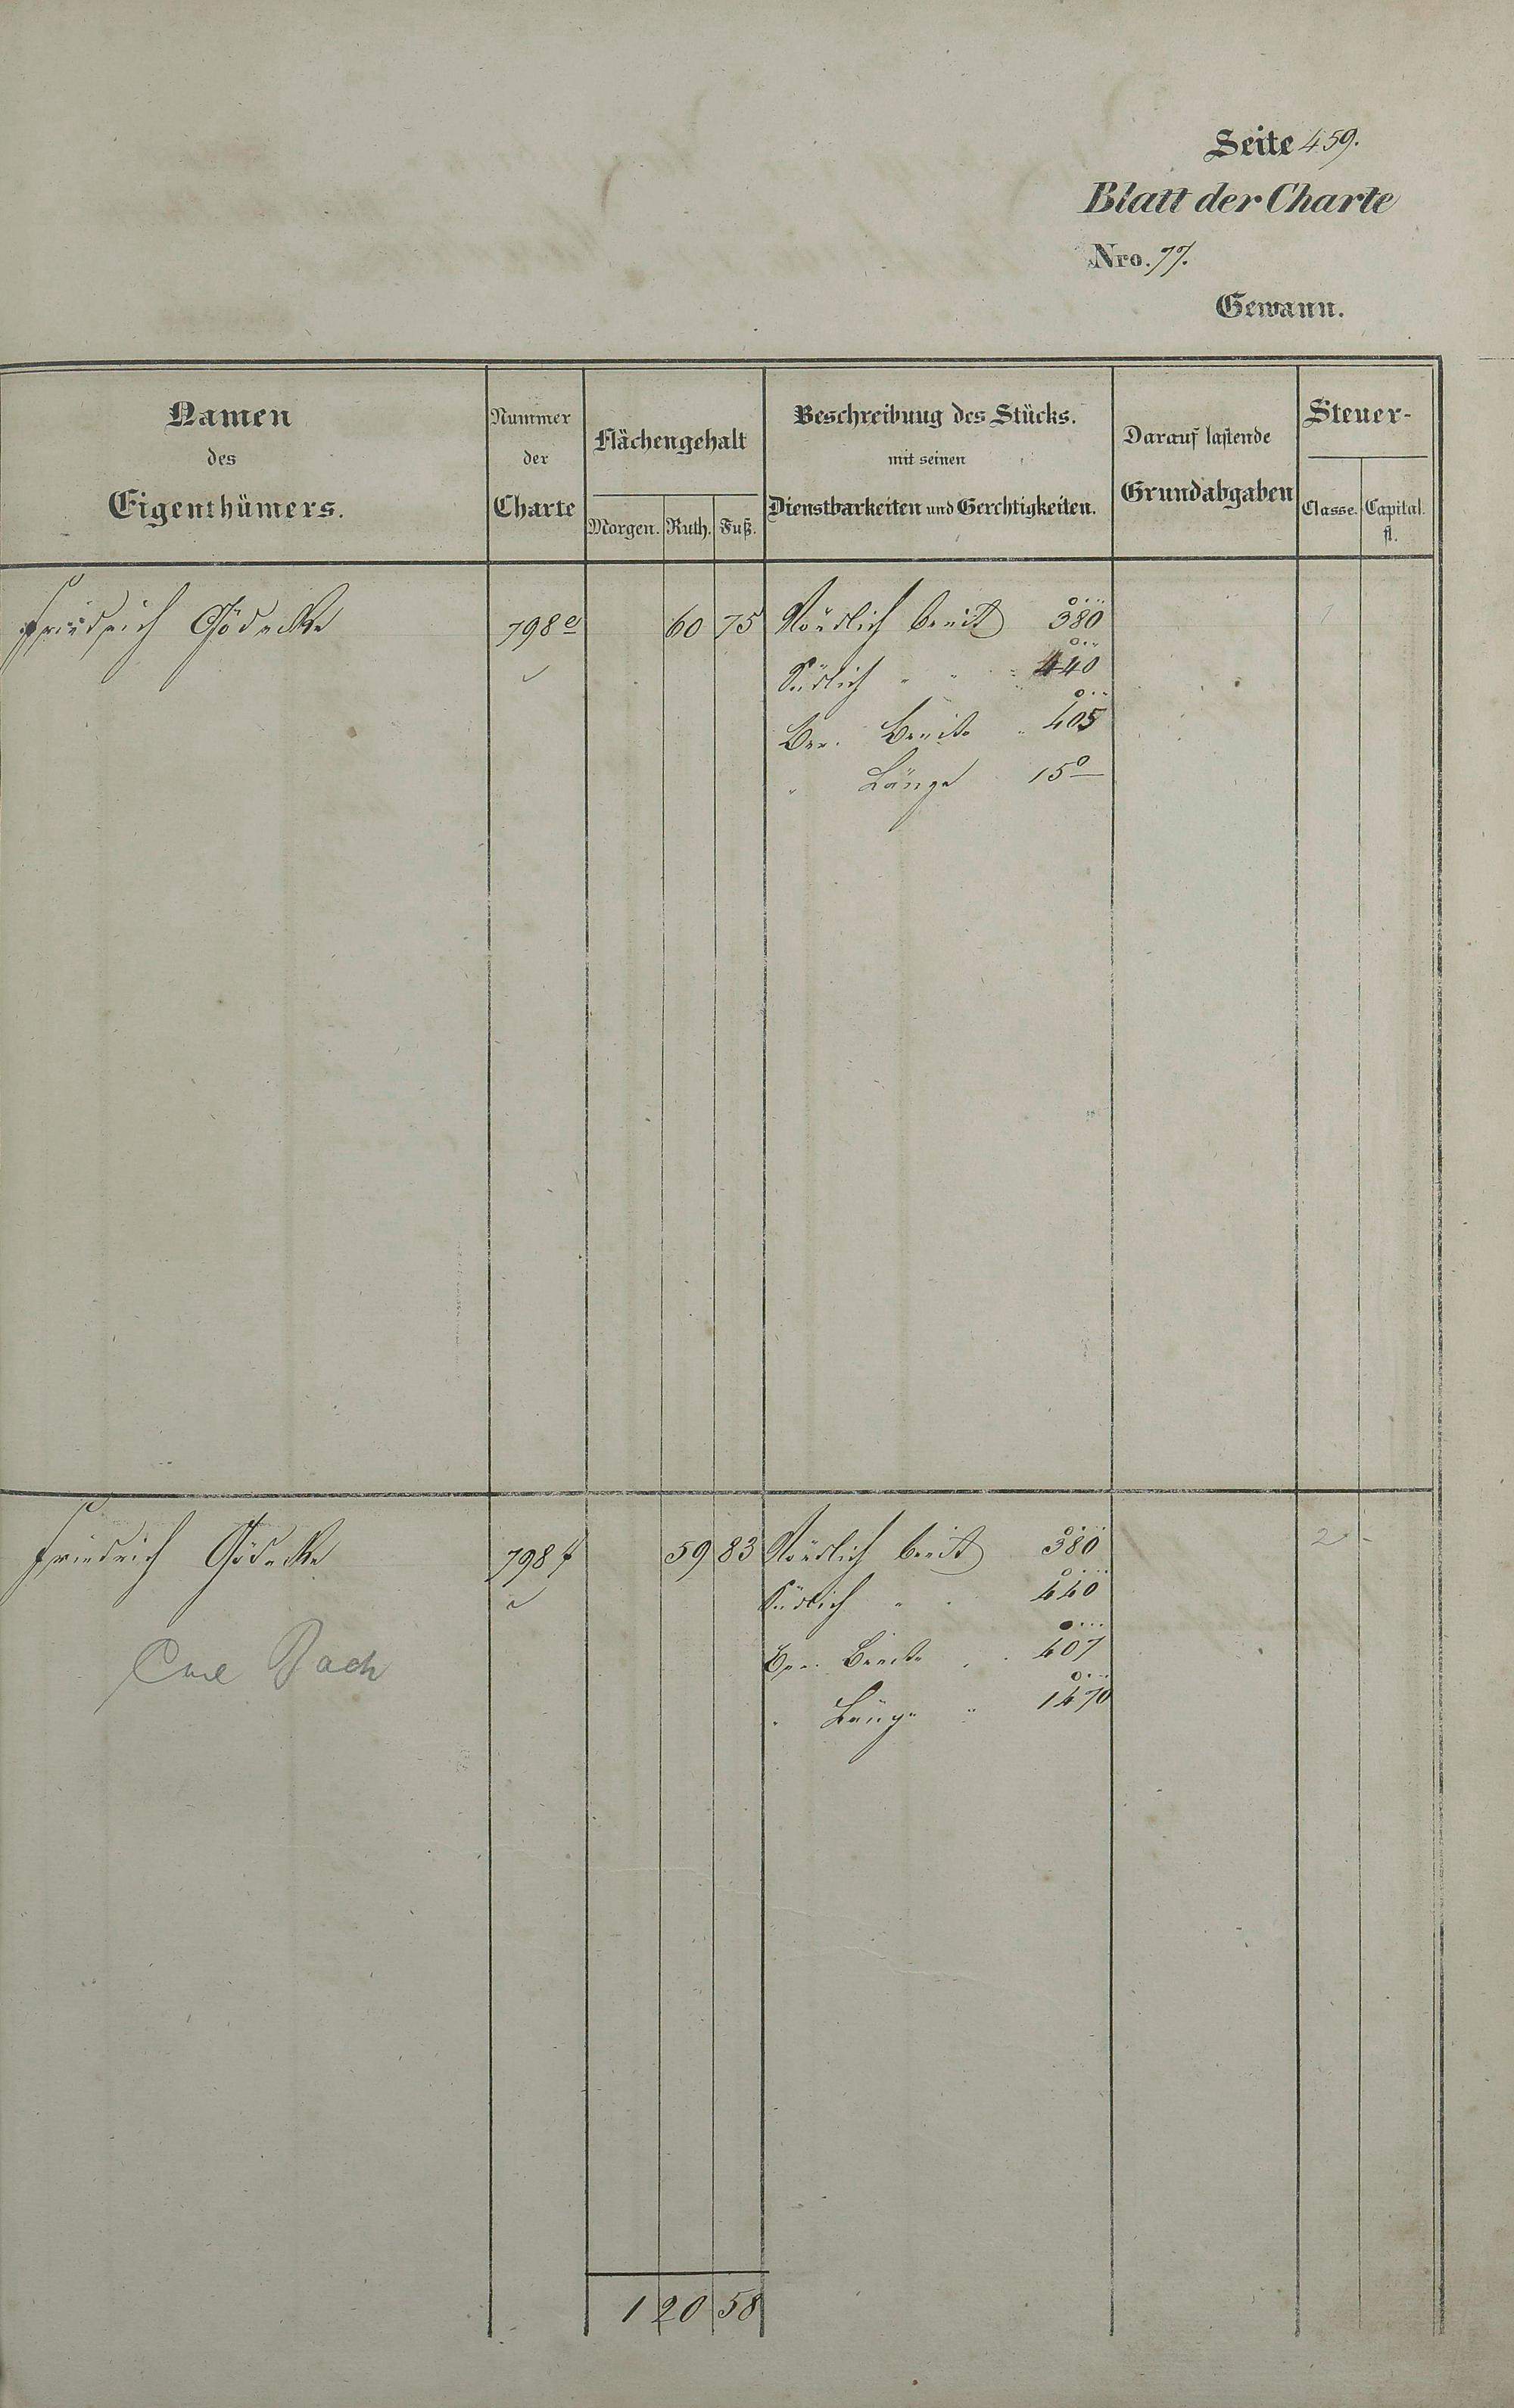 Seite 459.
Blatt der Charte
Nro. 77.
Gewann.
Namen des Eigenthümers.
Nummer der Charte
Flächengehalt
Morgen. Ruth. Fuß.
Beschreibung des Stücks.
mit seinen
Dienstbarkeiten und Gerchtigkeiten.
Darauf lastende
Grundabgaben
Steuer-
Classe. Capital.
fl.
Friedrich Gödecke 798e 60 75 Nördlich breit 380 1
Südlich " " 440
Ber. Breite " 405
" Länge 15° —
Friedrich Gödecke 798f 59 83 Nördlich breit 380 2 -
Südlich " " 440
Ber. Breite " 407
" Länge " 1470
Bach
1 20 58